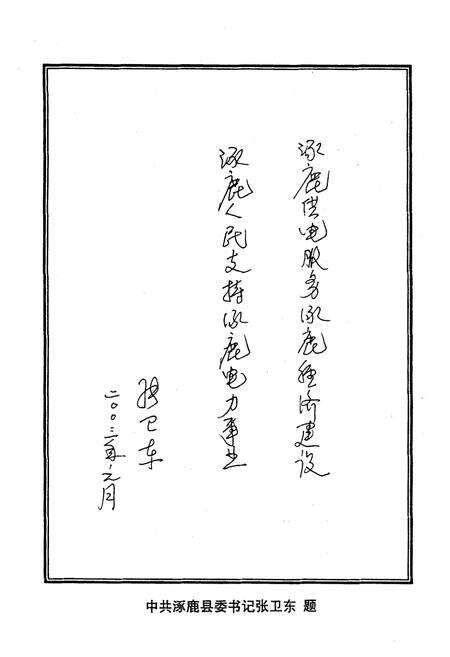 涿鹿供电服务涿鹿经济建设
涿鹿人民支持涿鹿电力事业
张卫东
二00二年元月
中共涿鹿县委书记张卫东 题